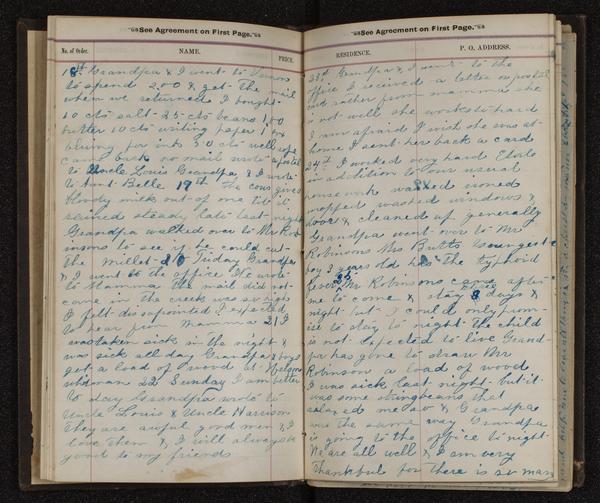 See Agreement on First Page.
No. of Order. NAME. PRICE.
18th Grandpa & I went to
to spend 2.00 & get the mail
when we returned I bought
10 cts salt 25 cts beans 1,00
butter 10 cts writing paper 1 box
bluing for ink 30 cts well rope
came back no mail wrote a postal
to Uncle Louis Grandpa & I wrote
to Aunt Belle 19th the cow gives
bloody milk out of one tit it
rained steady late last night
Grandpa walked over to Mr Rob
insons to see if he could cut
the millet 20 Friday Grandpa
& I went to the office He wrote
to Mamma the mail did not
come in the creek was so high
I felt disapointed I expected
to hear from Mamma 21 I
was taken sick in the night &
was sick all day Grandpa & boys
got a load of wood at
22 Sunday I am better
to day Grandpa wrote to
Uncle Louis & Uncle Harrison
They are awful good men & I
love them & I will always be
good to my friends
See Agreement on First Page.
RESIDENCE. P. O. ADDRESS.
23rd Grandpa & I went to the
office I received a letter & postal
card rather from mamma she
is not well she works to hard
I am afraid I wish she was at
home I sent her back a card
24th I worked very hard
in addition to our usual
housework washed ironed
mopped washed windows &
doors & cleaned up generally
Grandpa went over to Mr
Robinsons Mrs Butts youngest
boy 3 years old has the typhoid
fever 25 Mr Robinsons came after
me to come & stay 3 days &
night but I could only prom-
ise to stay to night the child
is not expected to live Grand-
pa has gone to draw Mr
Robinson a load of wood
I was sick last night but it
was some string beans that
me so & Grandpa
was the same way Grandpa
is going to the office to night
We are all well & I am very
thankful for there is so many